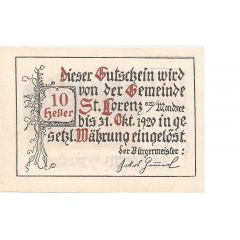 Dieser Gutschein wird
von der Gemeinde
10
Heller
St. Lorenz a/Mondsee
bis 31. Okt. 1920 in ge
setzl. Währung eingelöst.
der Bürgermeister:
Jakob